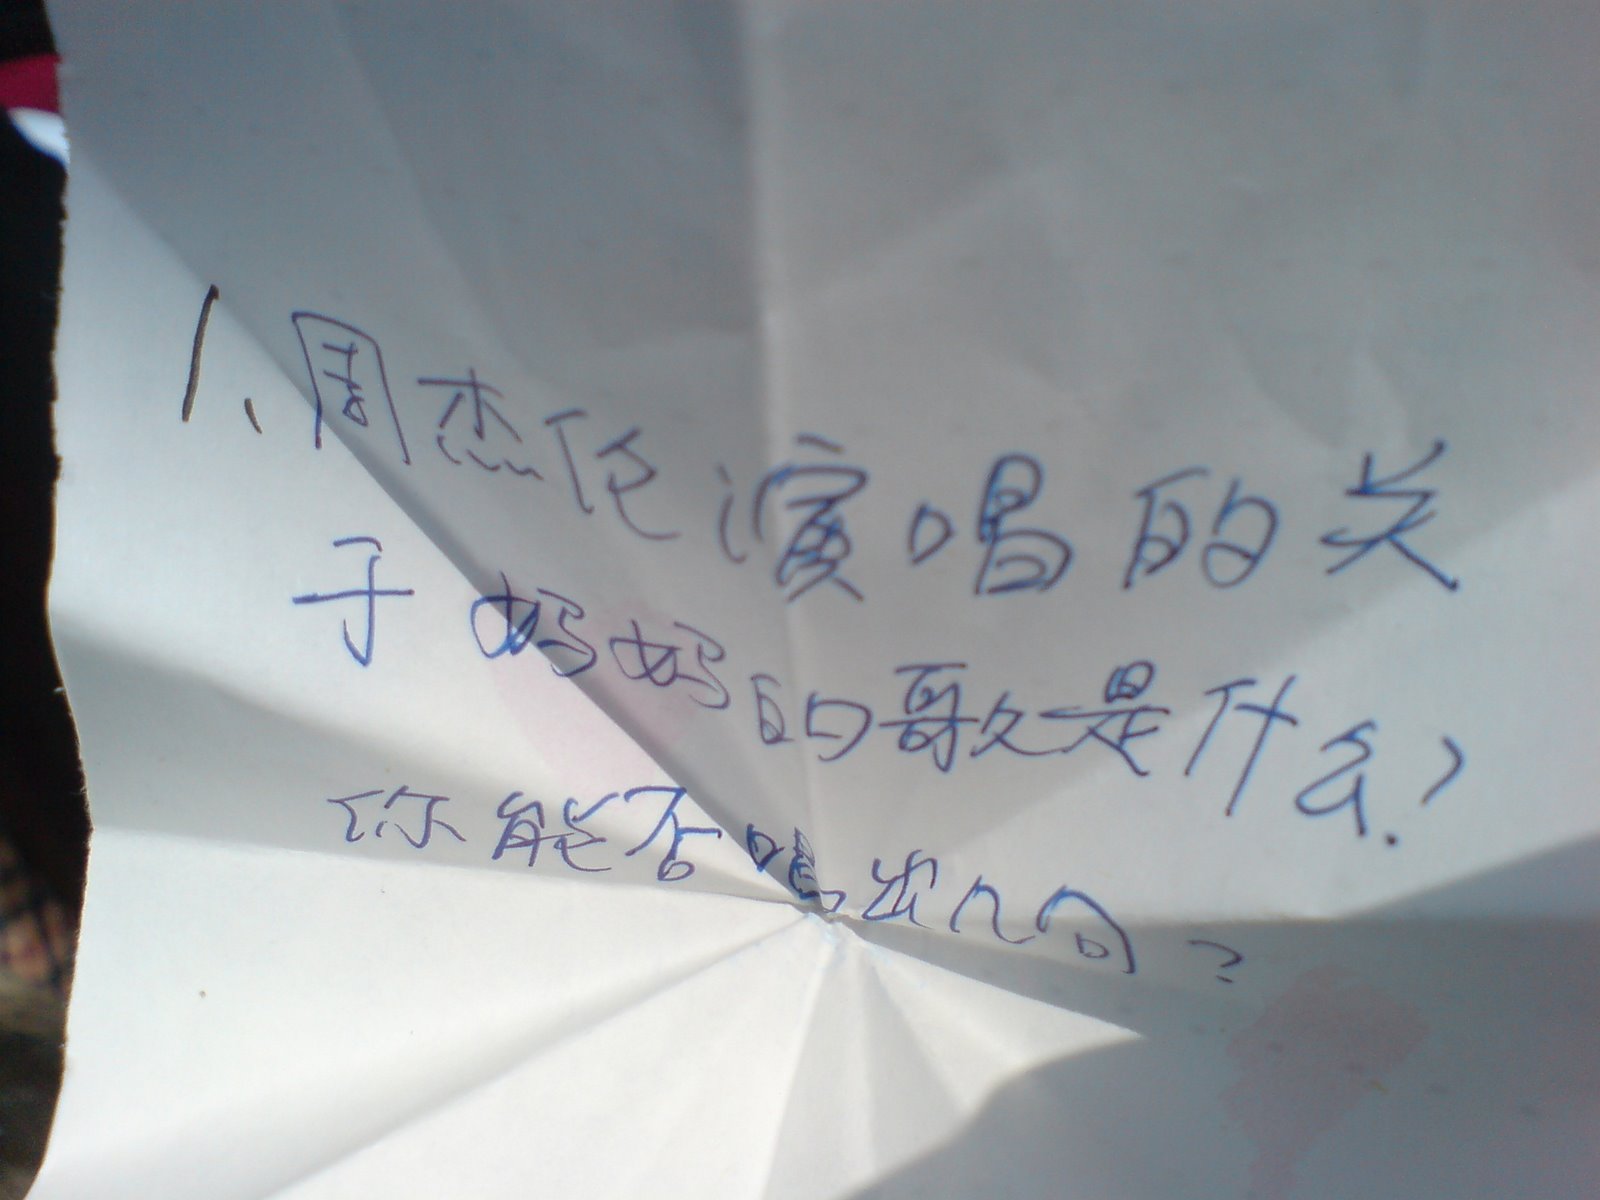 1、周杰伦演唱的关
于妈妈的歌是什么?
你能否唱出几句?